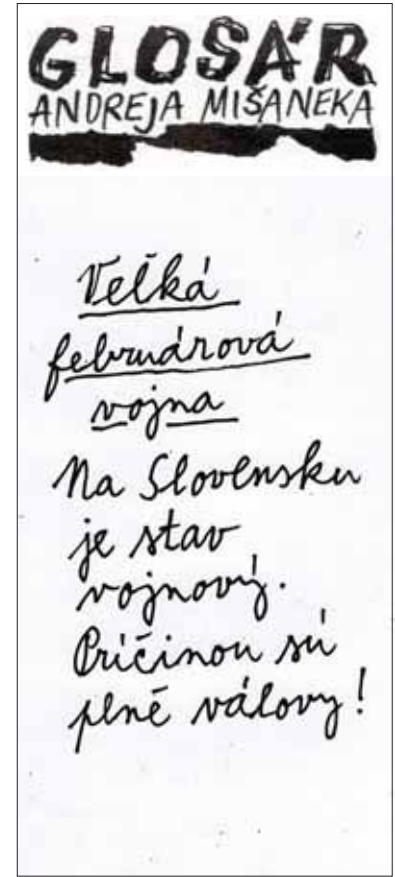 GLOSÁR
ANDREJA MIŠANEKA
Veľká
februárová
vojna
Na Slovensku
je stav
vojnový.
Príčinou sú
plné válovy!